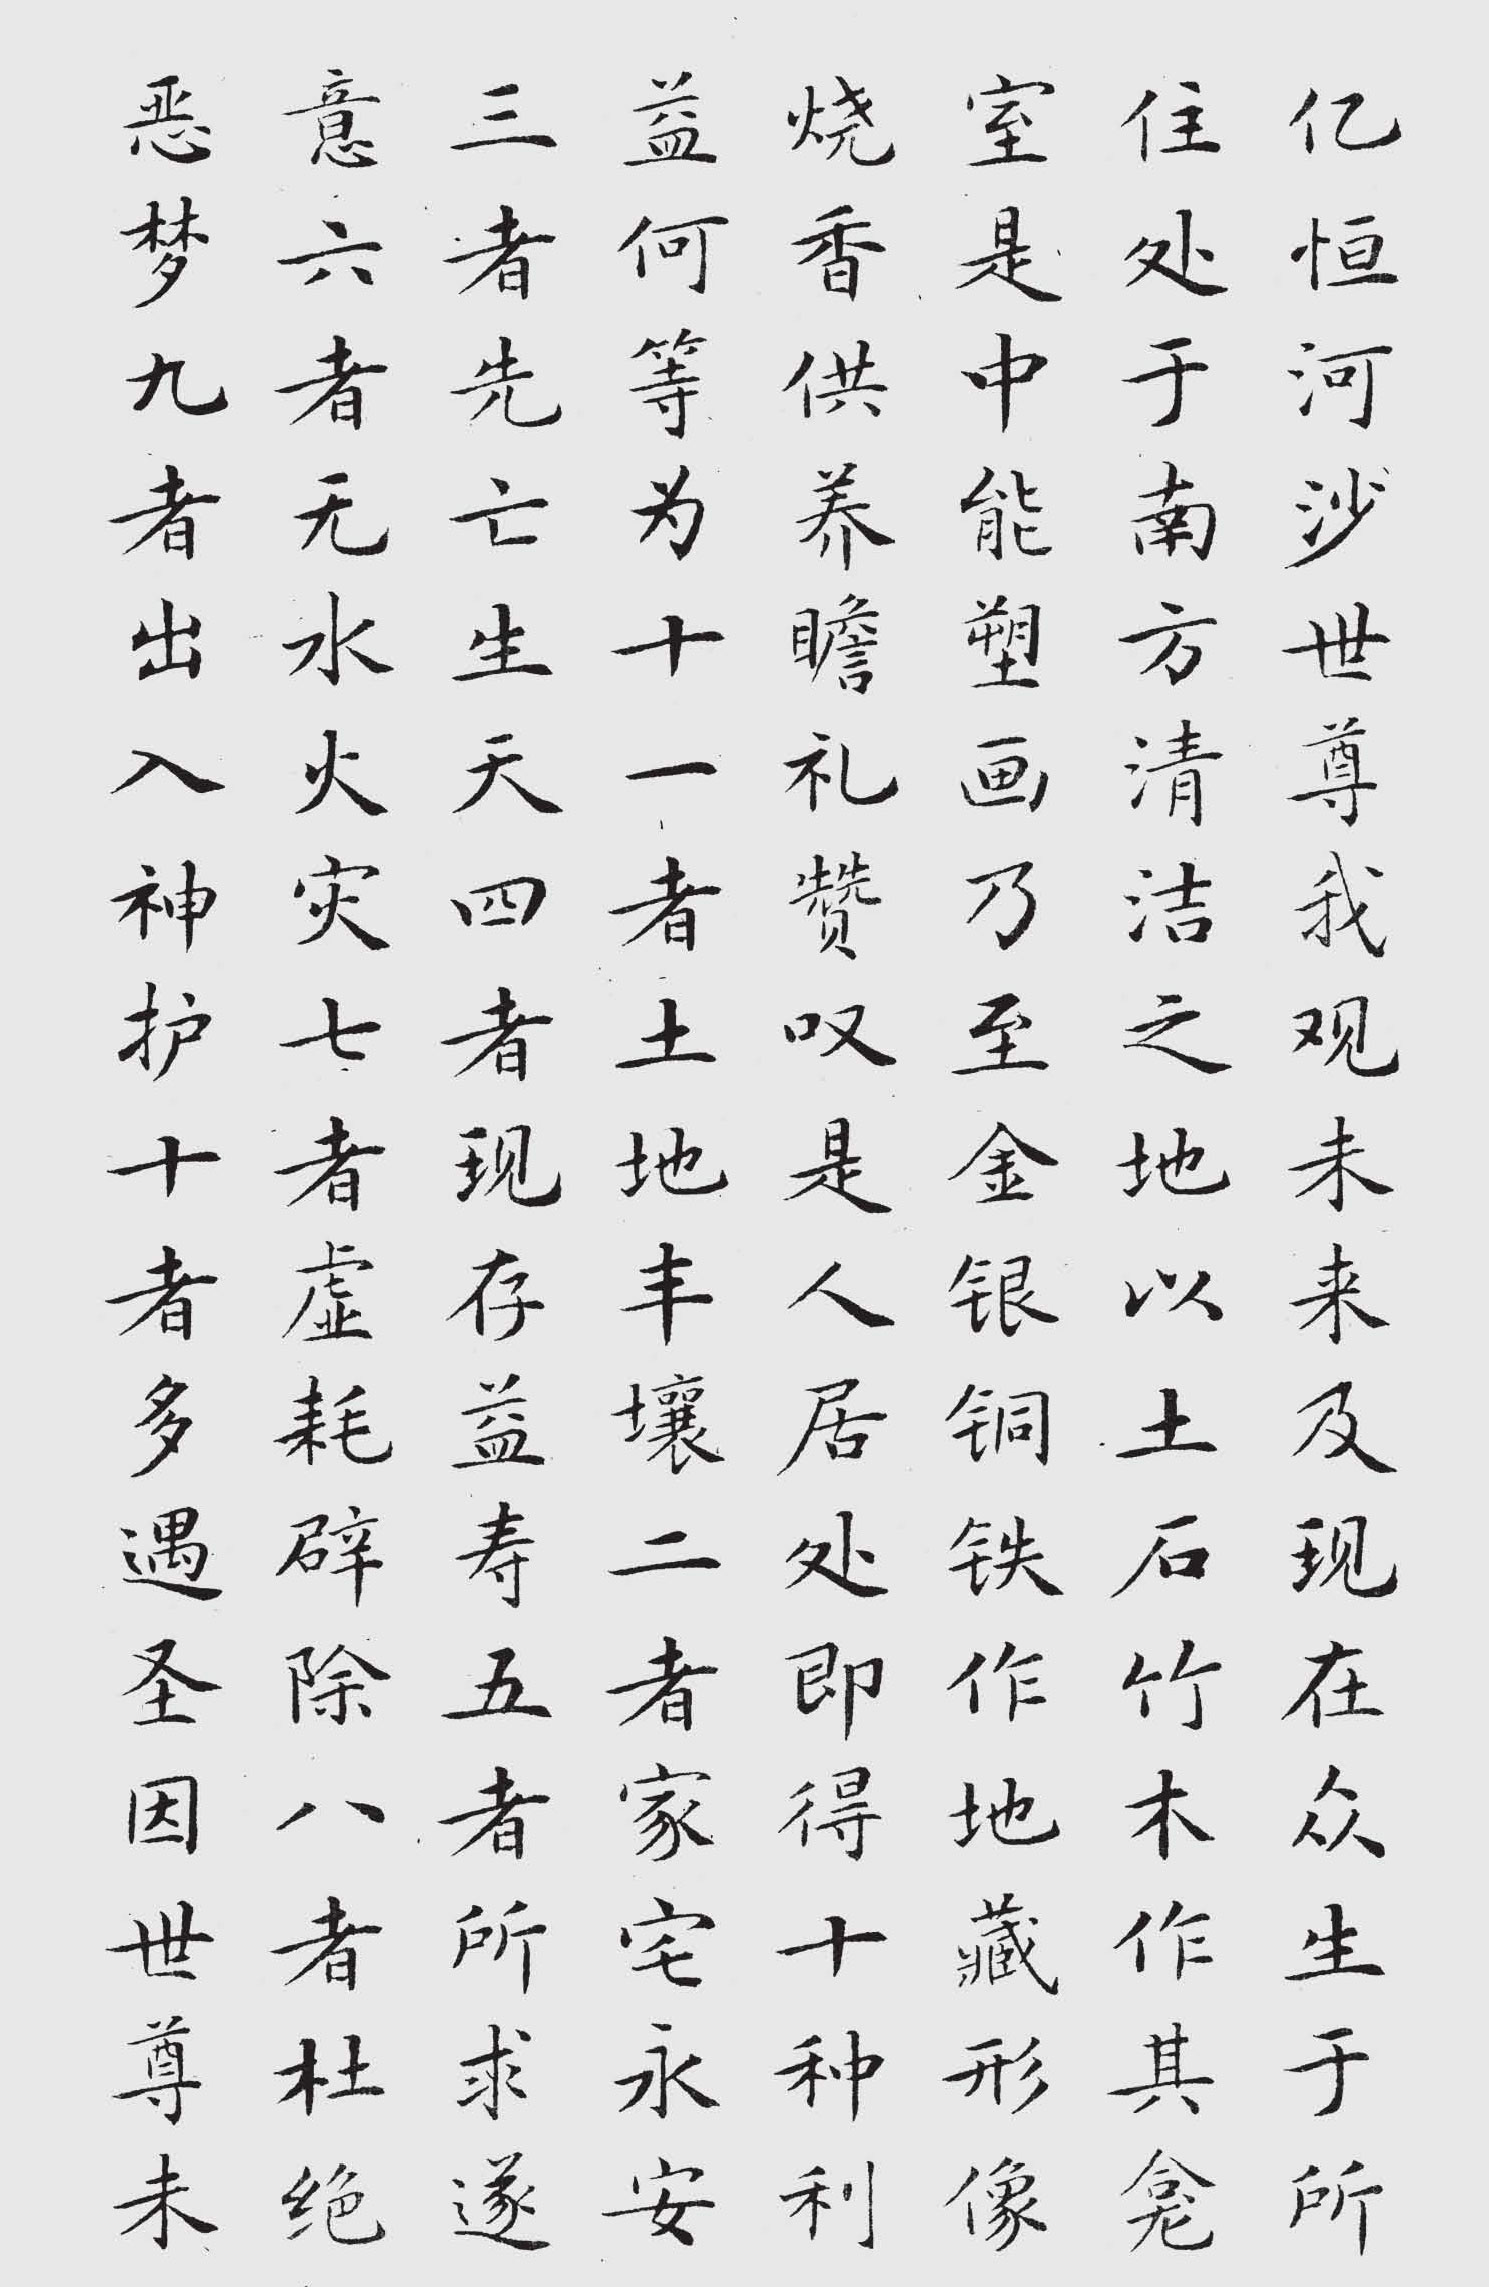 亿恒河沙世尊我观未来及现在众生于所
住处于南方清洁之地以土石竹木作其龛
室是中能塑画乃至金银铜铁作地藏形像
烧香供养瞻礼赞叹是人居处即得十种利
益何等为十一者土地丰壤二者家宅永安
三者先亡生天四者现存益寿五者所求遂
意六者无水火灾七者虚耗辟除八者杜绝
恶梦九者出入神护十者多遇圣因世尊未